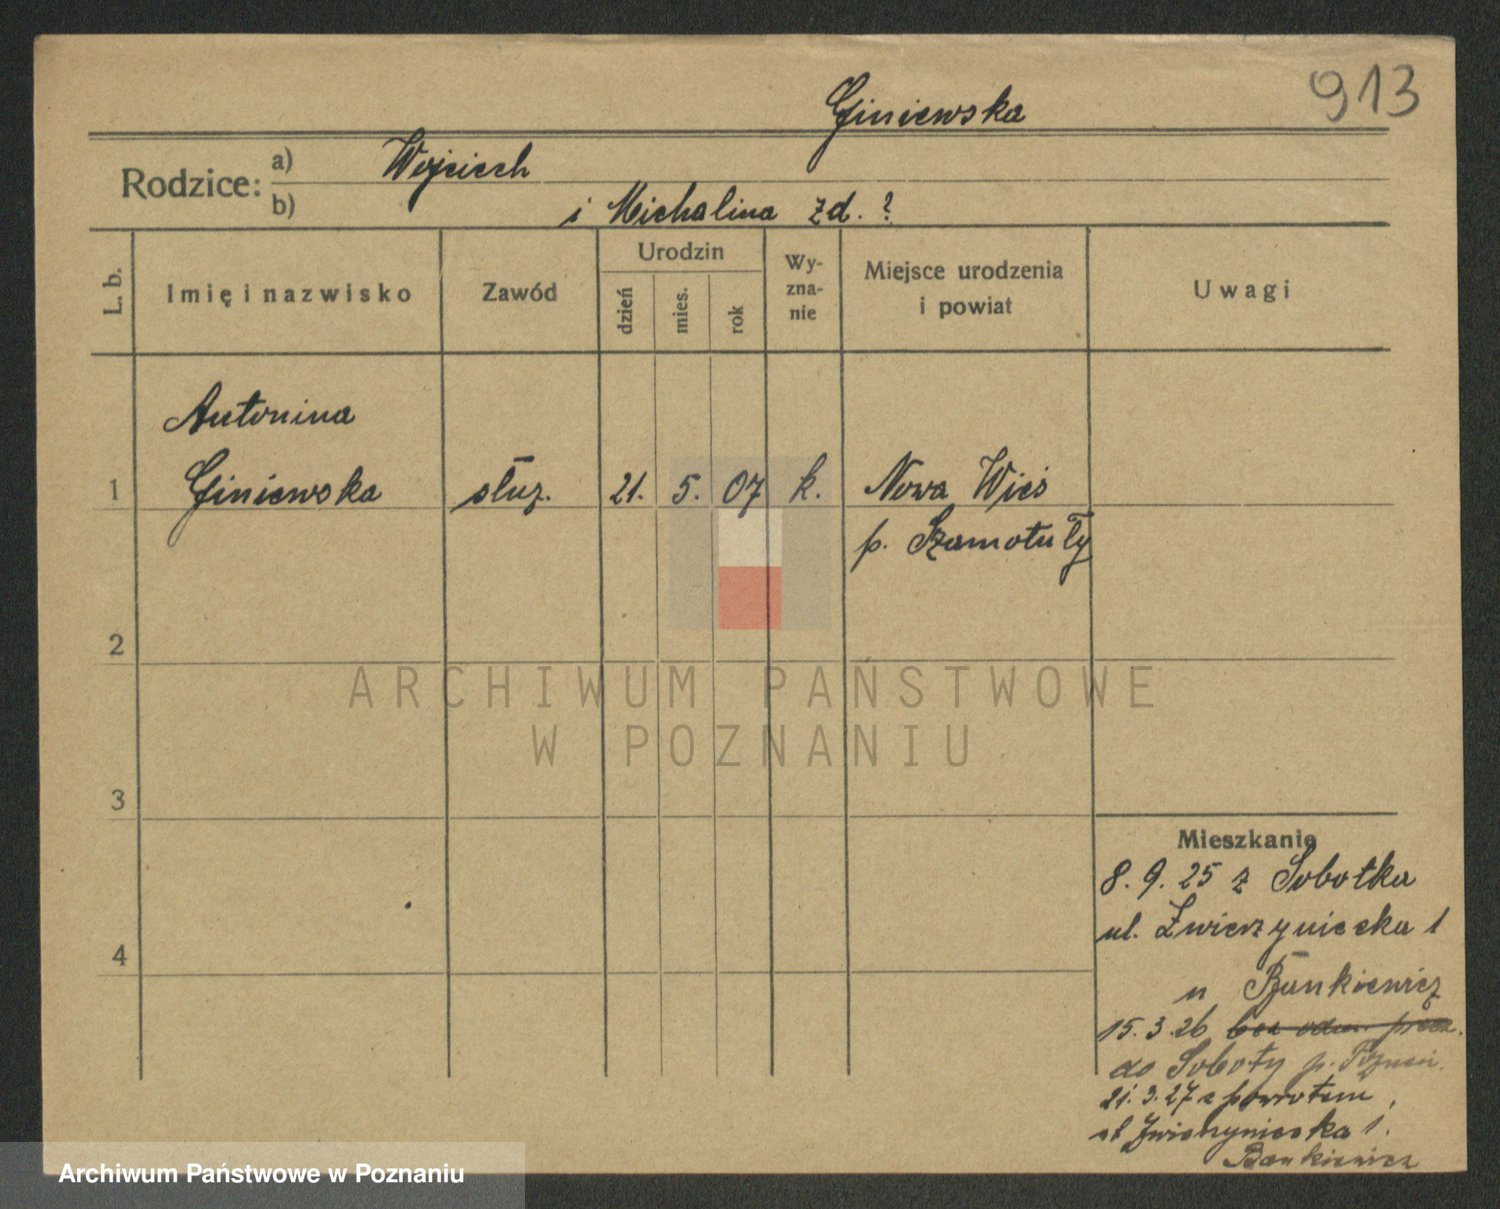 913
Giniewska
Rodzice:
a) Wojciech
b) i Michalina zd. ?
L. b.
Imię i nazwisko
Zawód
Urodzin
dzień
mies.
rok
Wy-
zna-
nie
Miejsce urodzenia
i powiat
Uwagi
Antonina
1 Giniewska służ. 21. 5. 07 k. Nowa Wieś
p. Szamotuły
2
3
4
ARCHIWUM PAŃSTWOWE
W POZNANIU
Mieszkanie
8. 9. 25 z Sobotka
ul. Zwierzyniecka 1
u Bankiewicz
15. 3. 26 bez odm. przez.
do Soboty p. Poznań.
21. 3. 27 z powrotem
Zwierzyniecka 1.
Bankiewicz
Archiwum Państwowe w Poznaniu